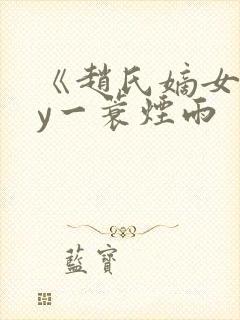 《趙氏嫡女
y一蓑煙雨
藍寶